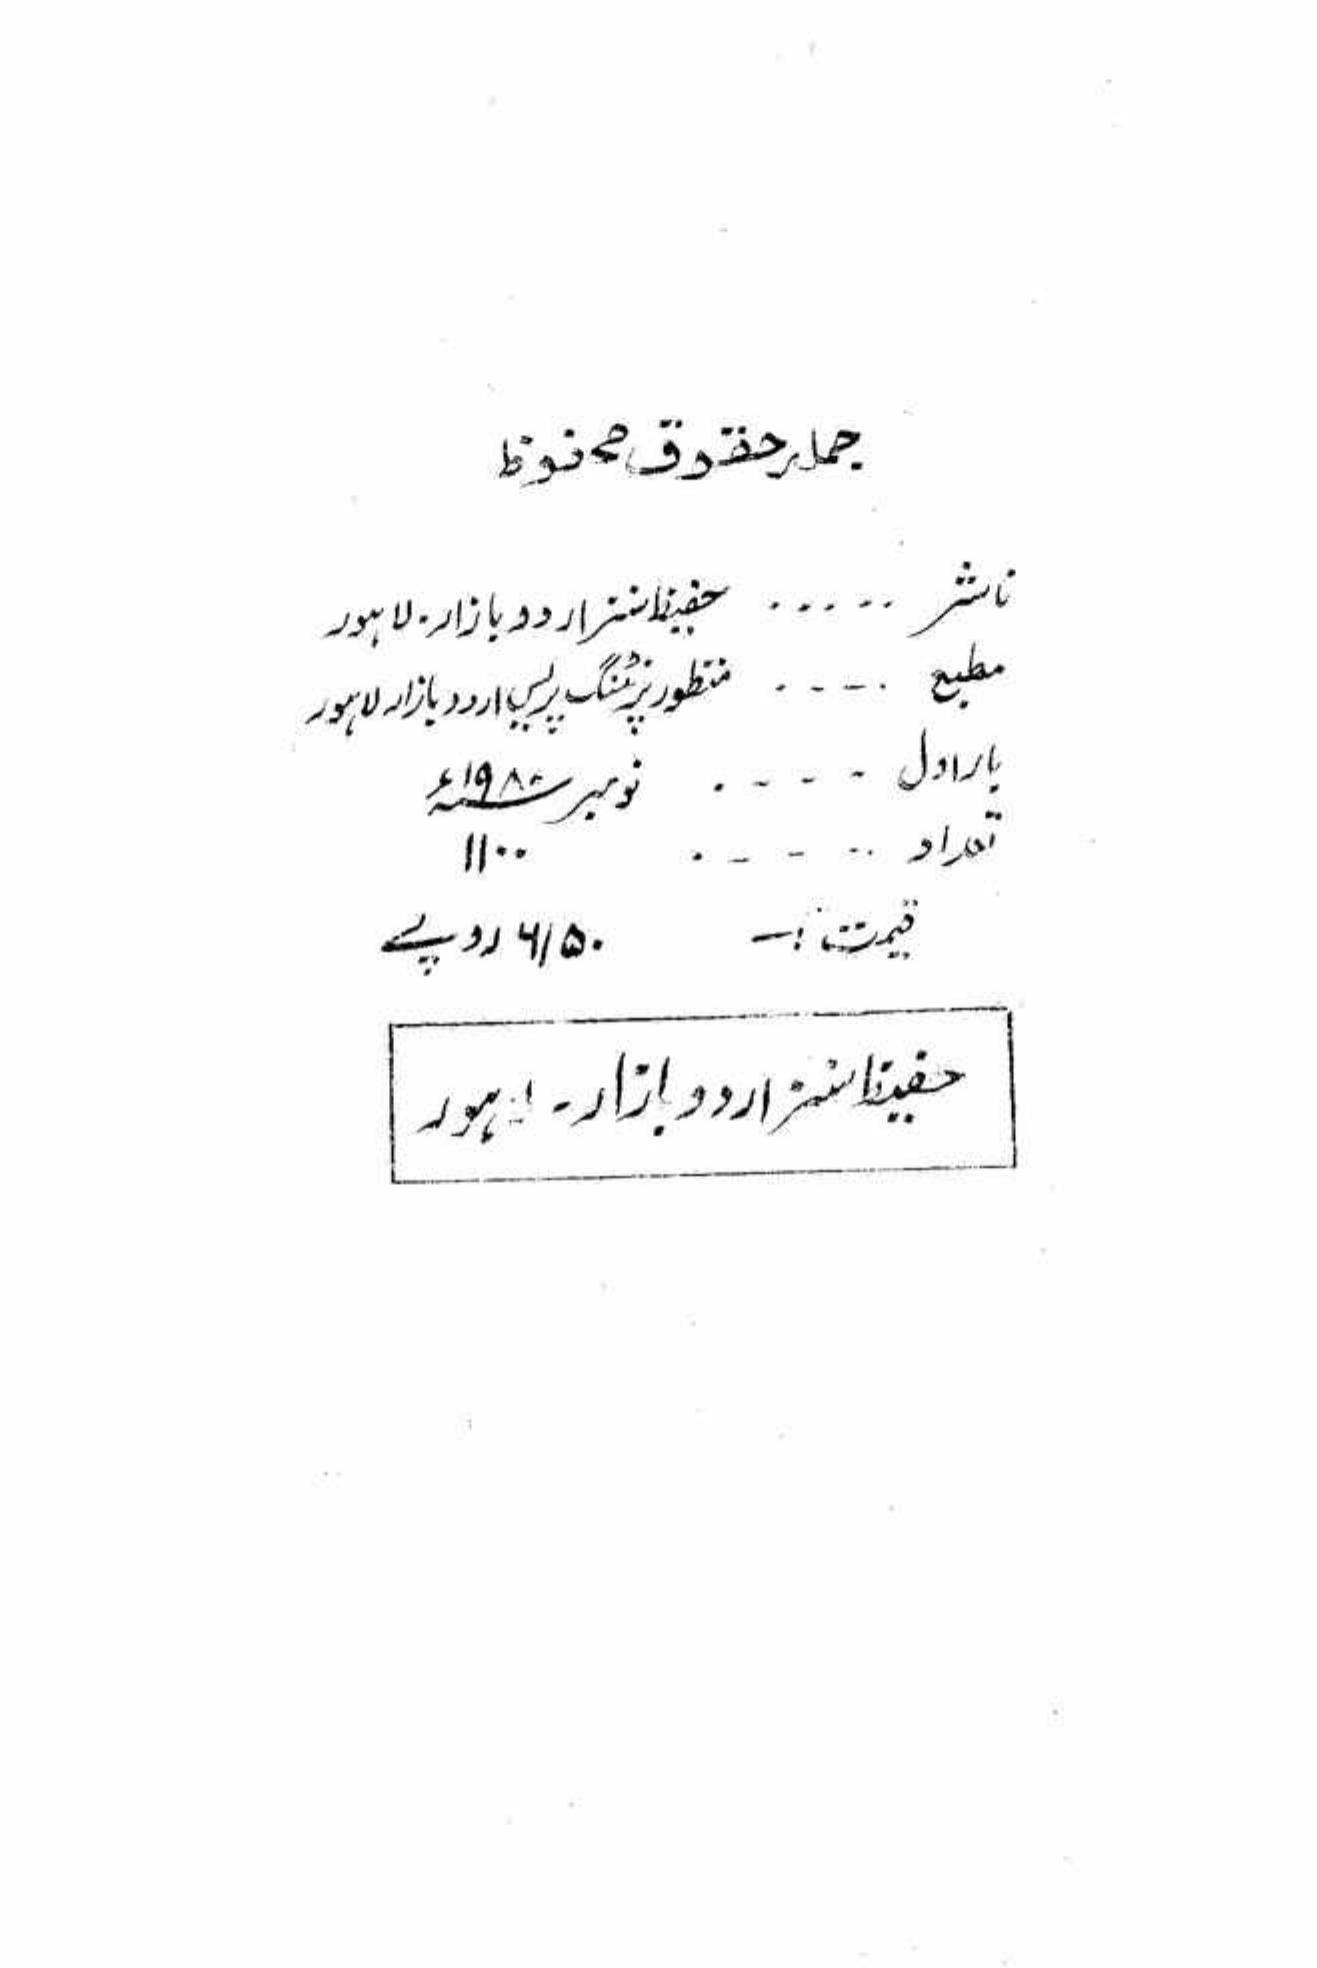 جملہ حقوق محفوظ
ناشر ۔۔۔۔۔ حفیظ سنز اردو بازار۔ لاہور
مطبع ۔۔۔۔ منظور پرنٹنگ پریس اردو بازار لاہور
بار اول ۔۔۔۔ نومبر ۱۹۸۰ء
تعداد ۔۔۔۔۔ ۱۱۰۰
قیمت :۔ ۶/۵۰ روپے
حفیظ سنز اردو بازار۔ لاہور